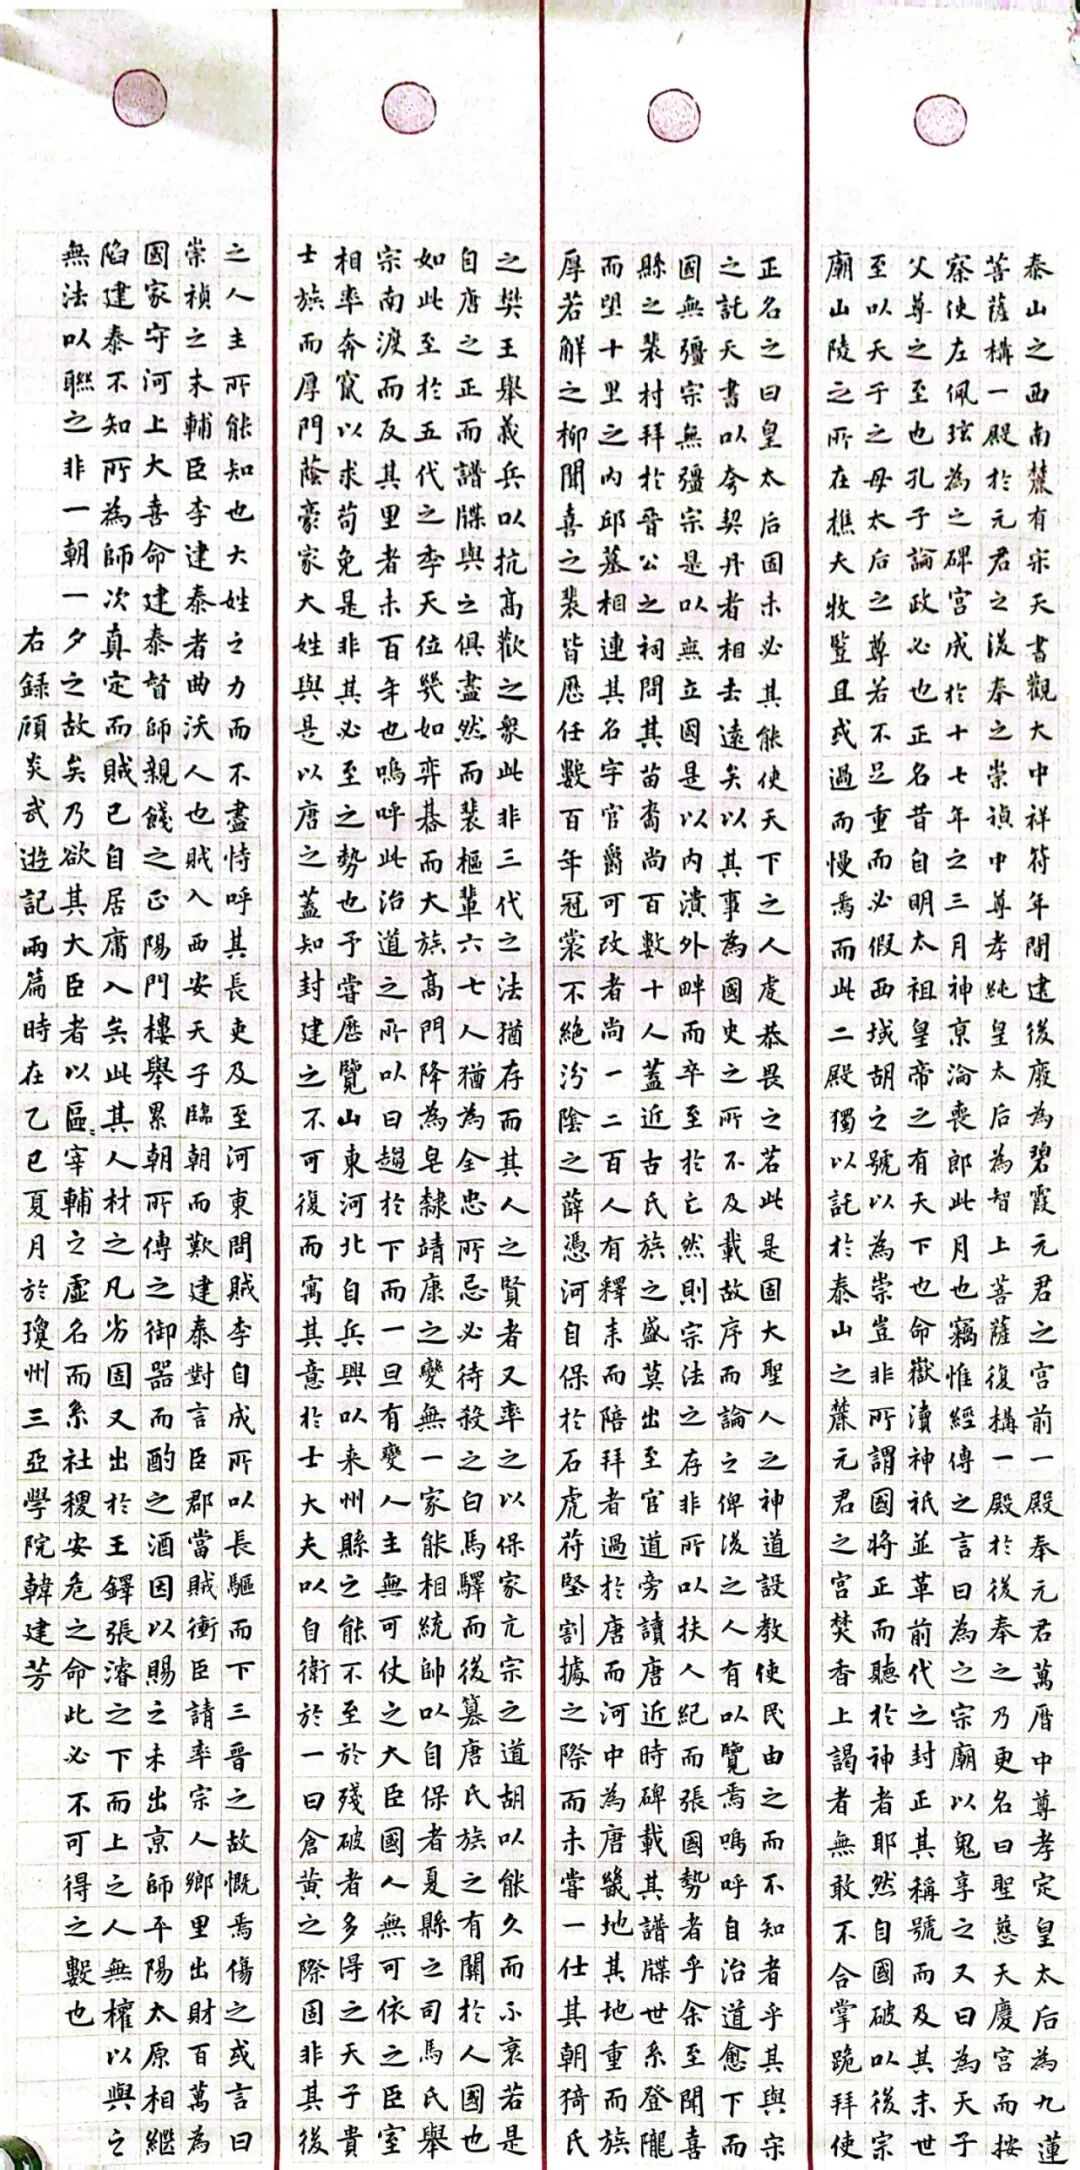 泰山之西南麓有宋天書觀大中祥符年間建後廢為碧霞元君之宮前一殿奉元君萬曆中尊孝定皇太后為九蓮
菩薩構一殿於元君之後奉之崇禎中尊孝純皇太后為智上菩薩復構一殿於後奉之乃更名曰聖慈天慶宮而按
察使左佩玹為之碑宮成於十七年之三月神京淪喪郎此月也竊惟經傳之言曰為之宗廟以鬼享之又曰為天子
父尊之至也孔子論政必也正名昔自明太祖皇帝之有天下也命嶽瀆神祇並革前代之封正其稱號而及其末世
至以天子之母太后之尊若不足重而必假西域胡之號以為崇豈非所謂國將正而聽於神者耶然自國破以後宗
廟山陵之所在樵夫牧豎且或過而慢焉而此二殿獨以託於泰山之麓元君之宮焚香上謁者無敢不合掌跪拜使
正名之曰皇太后固未必其能使天下之人虔恭畏之若此是固大聖人之神道設教使民由之而不知者乎其與宋
之託天書以夸契丹者相去遠矣以其事為國史之所不及載故序而論之俾後之人有以覽焉鳴呼自治道愈下而
國無彊宗無彊宗是以無立國是以內潰外畔而卒至於亡然則宗法之存非所以扶人紀而張國勢者乎余至聞喜
縣之裴村拜於晉公之祠問其苗裔尚百數十人蓋近古氏族之盛莫出至官道旁讀唐近時碑載其譜牒世系登隴
而望十里之內邱墓相連其名字官爵可攷者尚一二百人有釋耒而陪拜者過於唐而河中為唐畿地其地重而族
厚若解之柳聞喜之裴皆歷任數百年冠裳不絕汾陰之薛憑河自保於石虎苻堅割據之際而未嘗一仕其朝猗氏
之樊王舉義兵以抗高歡之衆此非三代之法猶存而其人之賢者又率之以保家亢宗之道胡以能久而不衰若是
自唐之正而譜牒與之俱盡然而裴樞輩六七人猶為全忠所忌必待殺之白馬驛而後篡唐氏族之有關於人國也
如此至於五代之季天位幾如弈棊而大族高門降為皂隸靖康之變無一家能相統帥以自保者夏縣之司馬氏舉
宗南渡而反其里者未百年也嗚呼此治道之所以曰趨於下而一旦有變人主無可仗之大臣國人無可依之臣室
相率奔竄以求苟免是非其必至之勢也予嘗歷覽山東河北自兵興以来州縣之能不至於殘破者多得之天子貴
士族而厚門蔭豪家大姓與是以唐之蓋知封建之不可復而寓其意於士大夫以自衛於一曰倉黃之際固非其後
之人主所能知也大姓之力而不盡恃呼其長吏及至河東問賊李自成所以長驅而下三晉之故慨焉傷之或言曰
崇禎之末輔臣李建泰者曲沃人也賊入西安天子臨朝而歎建泰對言臣郡當賊衝臣請率宗人鄉里出財百萬為
國家守河上大喜命建泰督師親餞之正陽門樓舉累朝所傳之御器而酌之酒因以賜之未出京師平陽太原相繼
陷建泰不知所為師次真定而賊已自居庸入矣此其人材之凡劣固又出於王鐸張濬之下而上之人無權以與之
無法以聯之非一朝一夕之故矣乃欲其大臣者以區〻宰輔之虛名而系社稷安危之命此必不可得之數也
右録顧炎武遊記兩篇時在乙巳夏月於瓊州三亞學院韓建芳